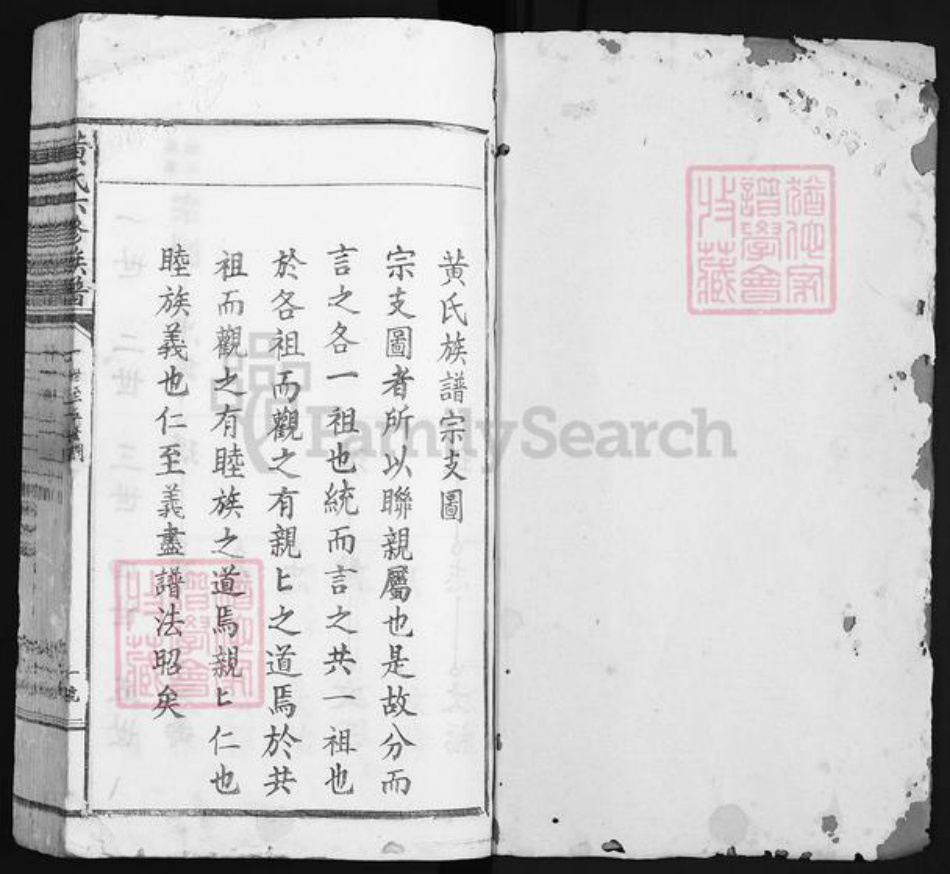 黄氏族譜宗支圖
宗支圖者所以聯親屬也是故分而
言之各一祖也統而言之共一祖也
於各祖而觀之有親匕之道焉於共
祖而觀之有睦族之道焉親匕仁也
睦族義也仁至義盡譜法昭矣
黄氏六修族譜
一號
猶他家
譜學會
收藏
猶他家
譜學會
收藏
FamilySearch